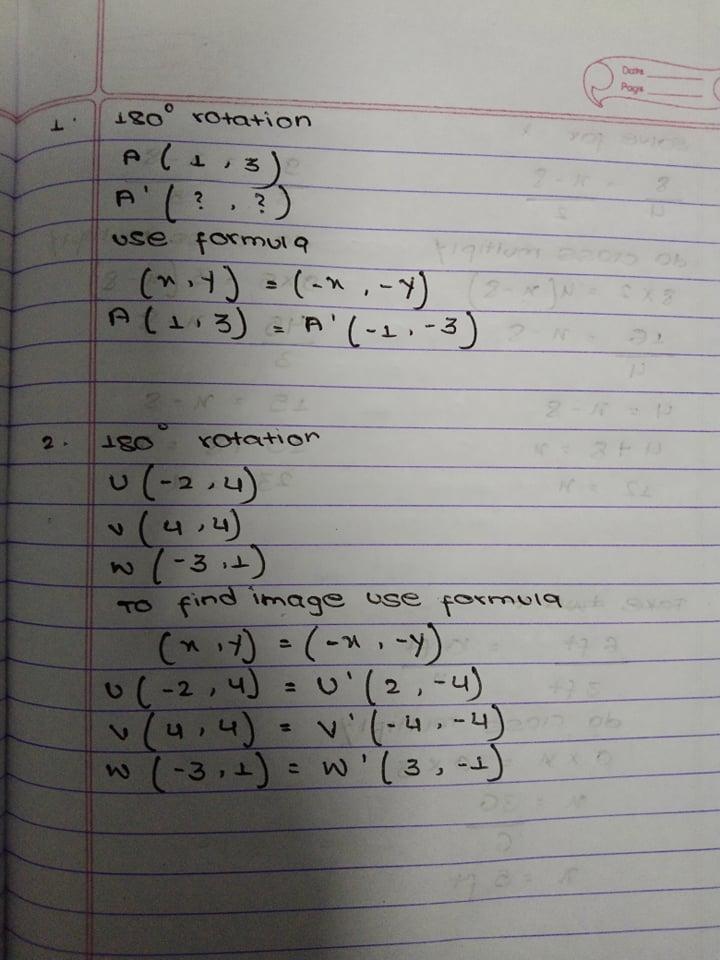 Date
Page
1. 180° rotation
A (1, 3)
A' (?, ?)
use formula
(x, y) = (-x, -y)
A (1, 3) = A' (-1, -3)
2. 180° rotation
U (-2, 4)
V (4, 4)
W (-3, 1)
To find image use formula
(x, y) = (-x, -y)
U (-2, 4) = U' (2, -4)
V (4, 4) = V' (-4, -4)
W (-3, 1) = W' (3, -1)